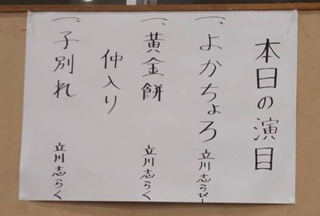 本日の演目
一、よかちょろ 立川志らぴー
一、黄金餅 立川志らく
仲入り
一、子別れ 立川志らく